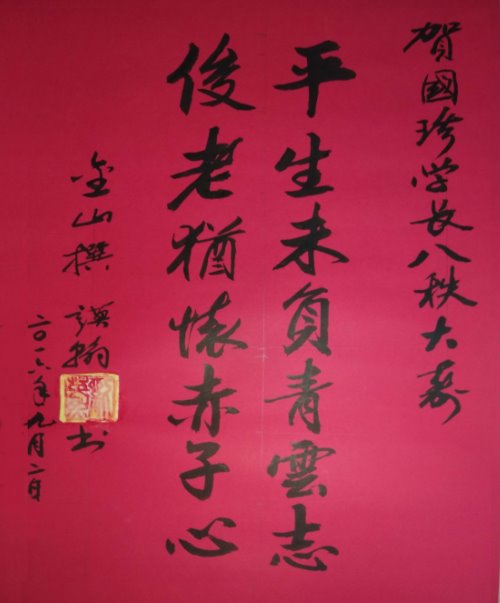 賀國珍学長八秩大寿
平生未負青雲志
俊老猶懷赤子心
金山撰 謨翰 书
二〇一六年九月二日